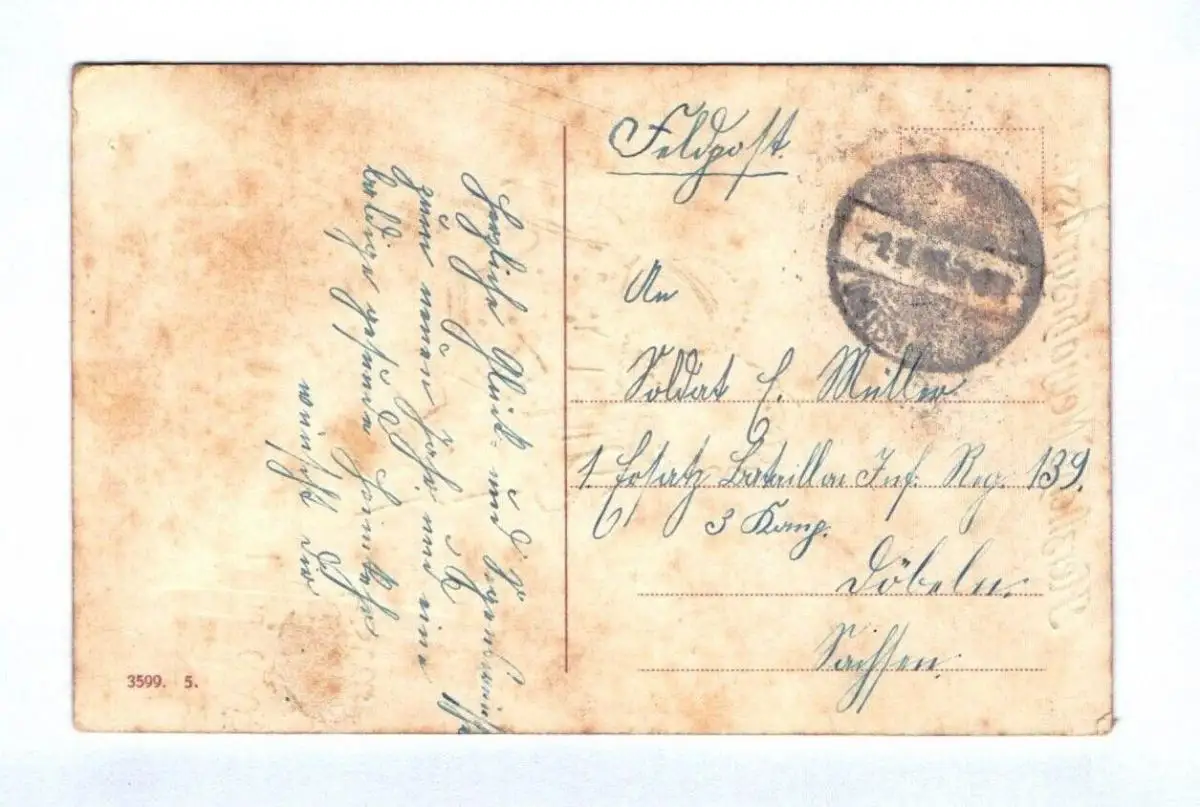 Feldpost.
An
Soldat E. Müller
1. Ersatz Bataillon Inf. Reg. 139.
3 Komp.
Döbeln.
Sachsen.
Herzliche Glück- und Segenswünsche
zum neuen Jahr und eine
baldige gesunde Heimkehr
wünscht Dir
3599. 5.